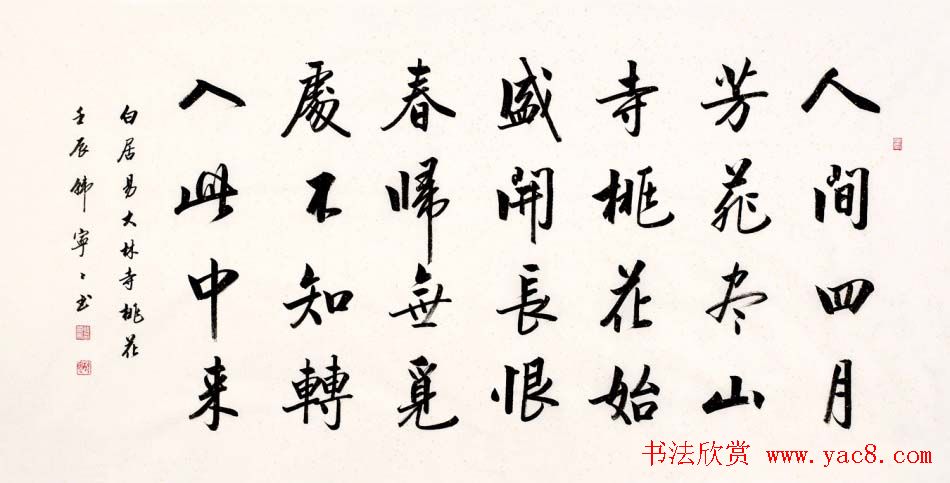 人間四月
芳菲尽山
寺桃花始
盛開長恨
春帰無覓
處不知轉
入此中来
白居易大林寺桃花
壬辰寧〻书
书法欣赏 www.yac8.com